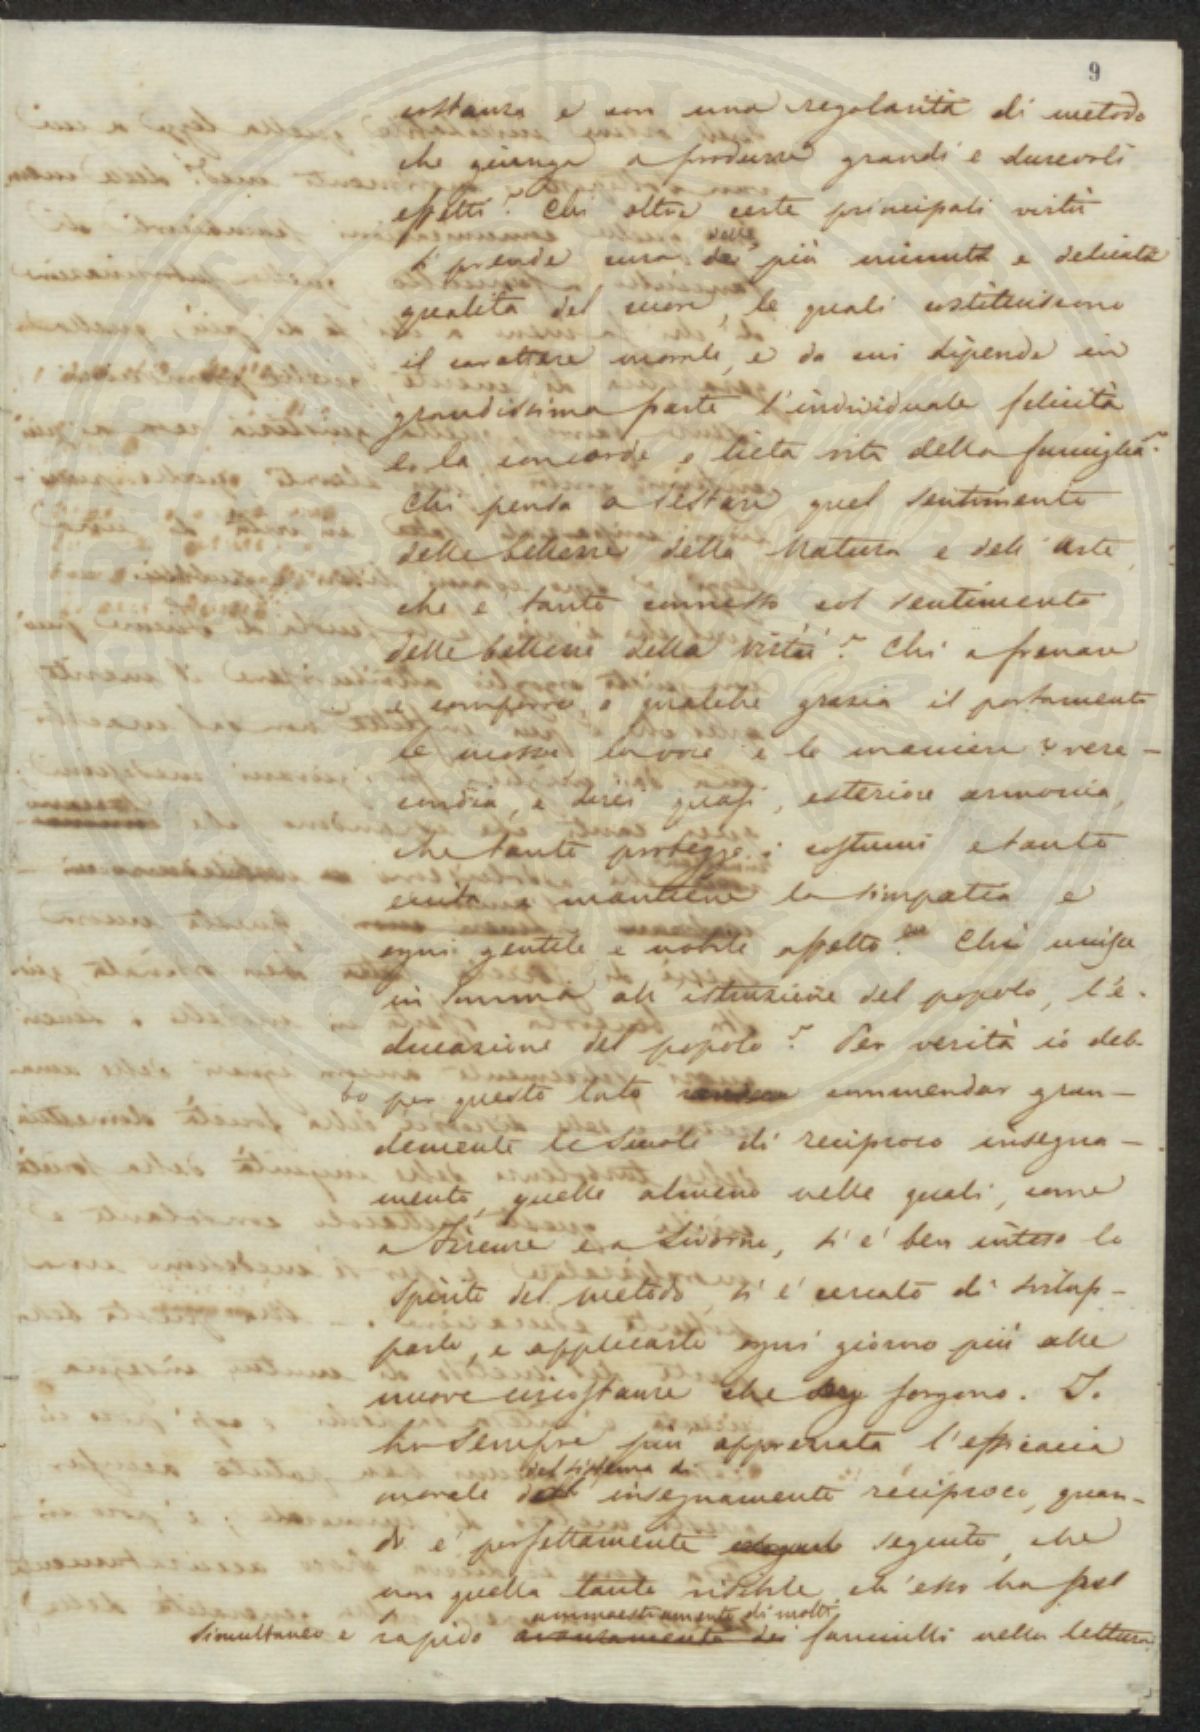 9
costanza e con una regolarità di metodo
che giunga a produrre grandi e durevoli
effetti? Chi oltre certe principali virtù
si prende cura delle più minute e delicate
qualità del cuore, le quali costituiscono
il carattere morale, e da cui dipende in
grandissima parte l'individuale felicità
e la concorde e lieta vita della famiglia?
Chi pensa a destare quel sentimento
delle bellezze della Natura e dell'arte
che è tanto connesso col sentimento
delle bellezze della virtù? Chi a frenare
e comporre a qualche grazia il portamento
le mosse la voce e le maniere? vere-
condia, e direi quasi, esteriore armonia,
che tanto protegge i costumi e tanto
eccita e mantiene la simpatia e
ogni gentile e nobile affetto? Chi unisce
in somma all'istruzione del popolo, l'e-
ducazione del popolo? Per verità io deb-
bo per questo lato commendar gran-
demente le Scuole di reciproco insegna-
mento, quelle almeno nelle quali, come
a Firenze e a Livorno, si è ben inteso lo
spirito del metodo, si è cercato di svilup-
parlo, e applicarlo ogni giorno più alle
nuove circostanze che sorgono. Io
ho sempre più apprezzata l'efficacia
del sistema di
morale insegnamento reciproco, quan-
do è perfettamente seguito, che
non quella tanto visibile ch'esso ha pel
ammaestramento di molti
simultaneo e rapido avanzamento dei fanciulli nella lettura